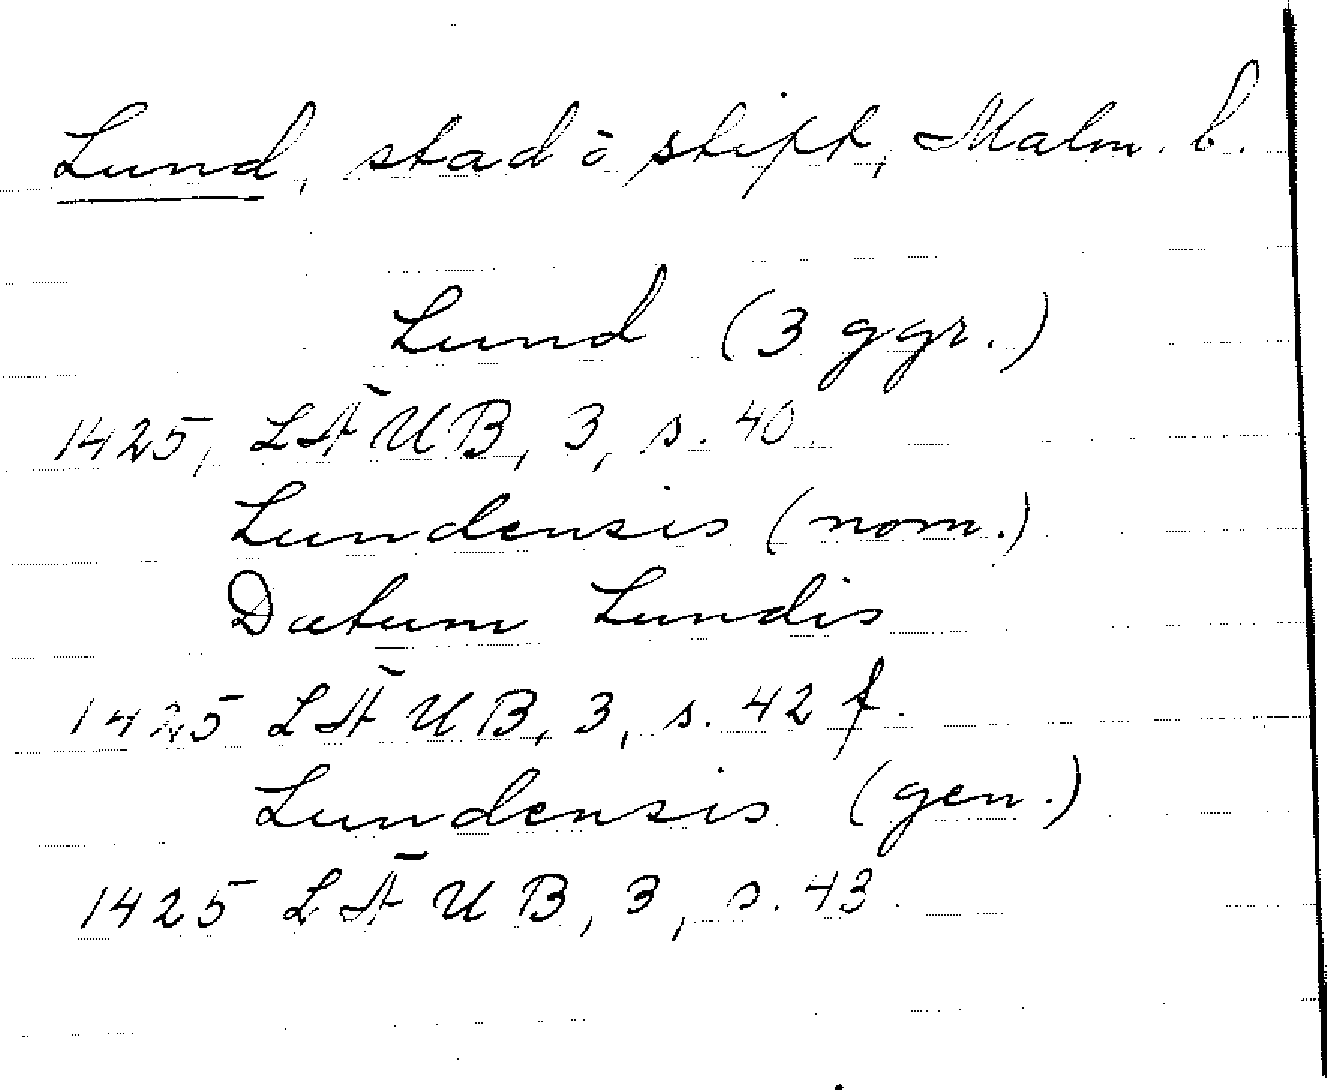 Lund, stad o stift, Malm. l.
Lund (3 ggr.)
1425, LÄUB, 3, s. 40
Lundensis (nom.)
Datum Lundis
1425 LÄUB, 3, s. 42 f.
Lundensis (gen.)
1425 LÄUB, 3, s. 43.